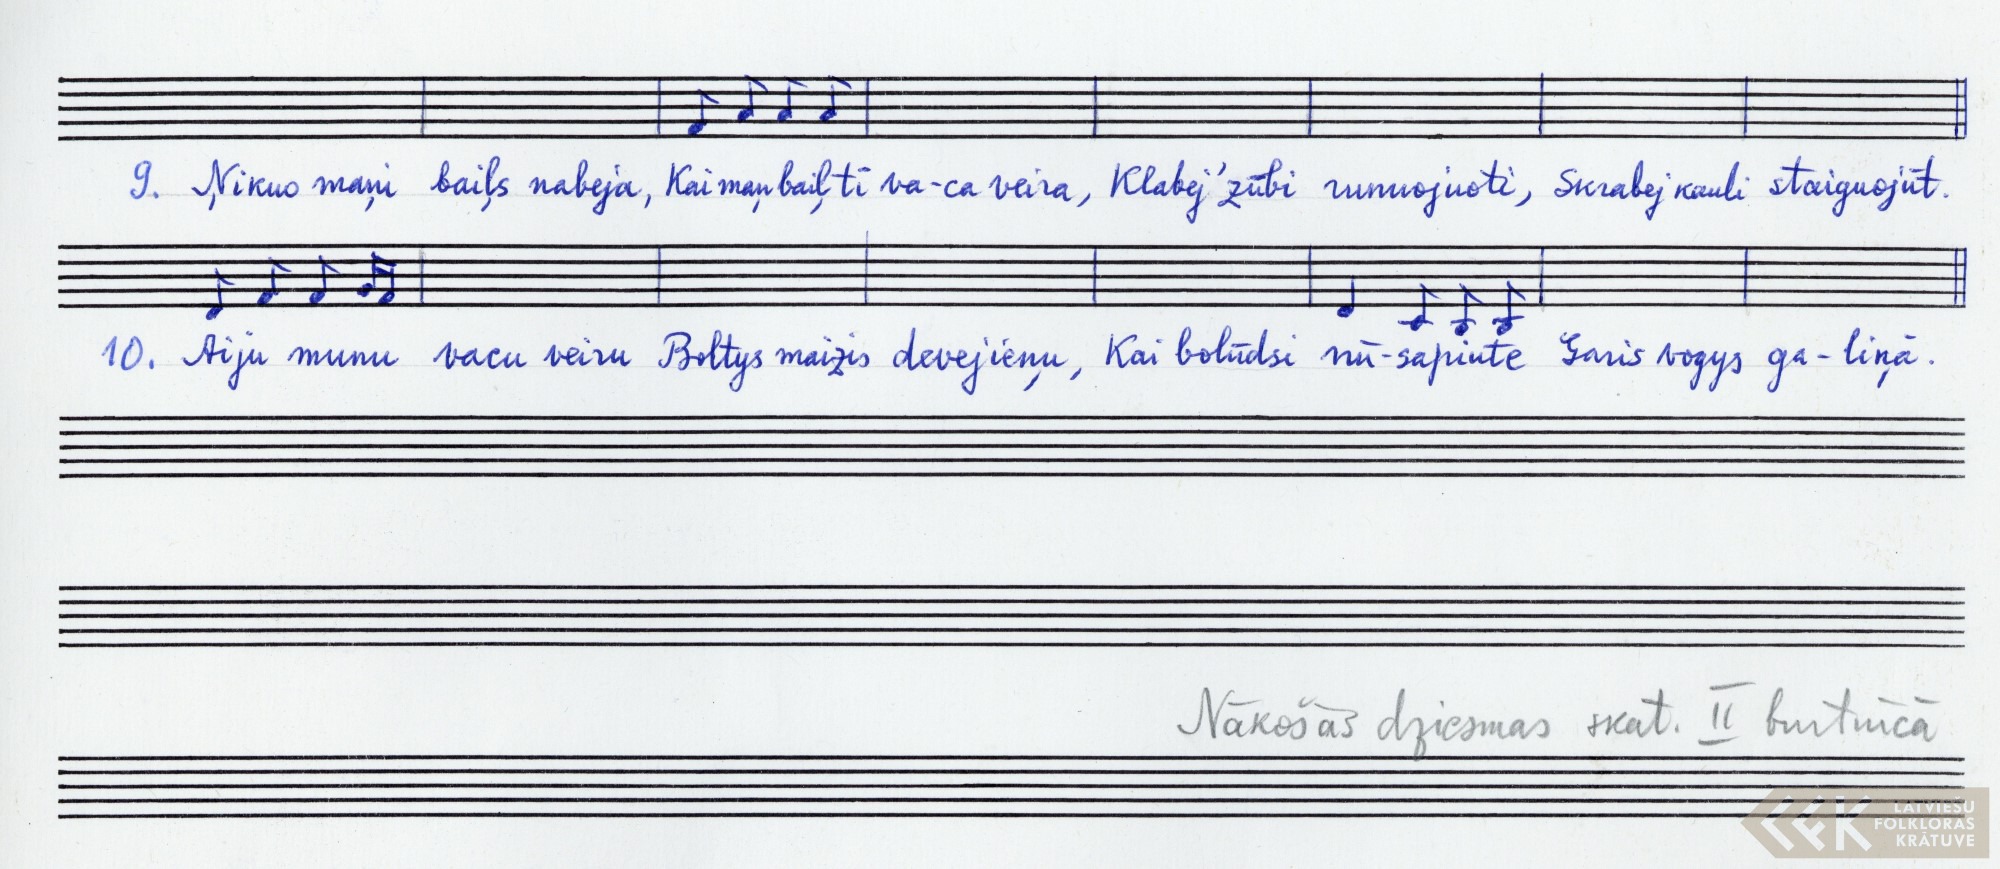 9. Ņikuo maņi baiļs nabeja, Kai maņ baiļ tī va-ca veira, Klabej' zūbi runuojuoti, Skrabej kauli staiguojūt.
10. Aiju munu vacu veiru Boltys maizis devejieņu, Kai bolūdsi nū-sapiute Garis vogys ga-liņā.
Nākošās dziesmas skat. II burtnīcā
LATVIEŠU
FOLKLORAS
KRĀTUVE